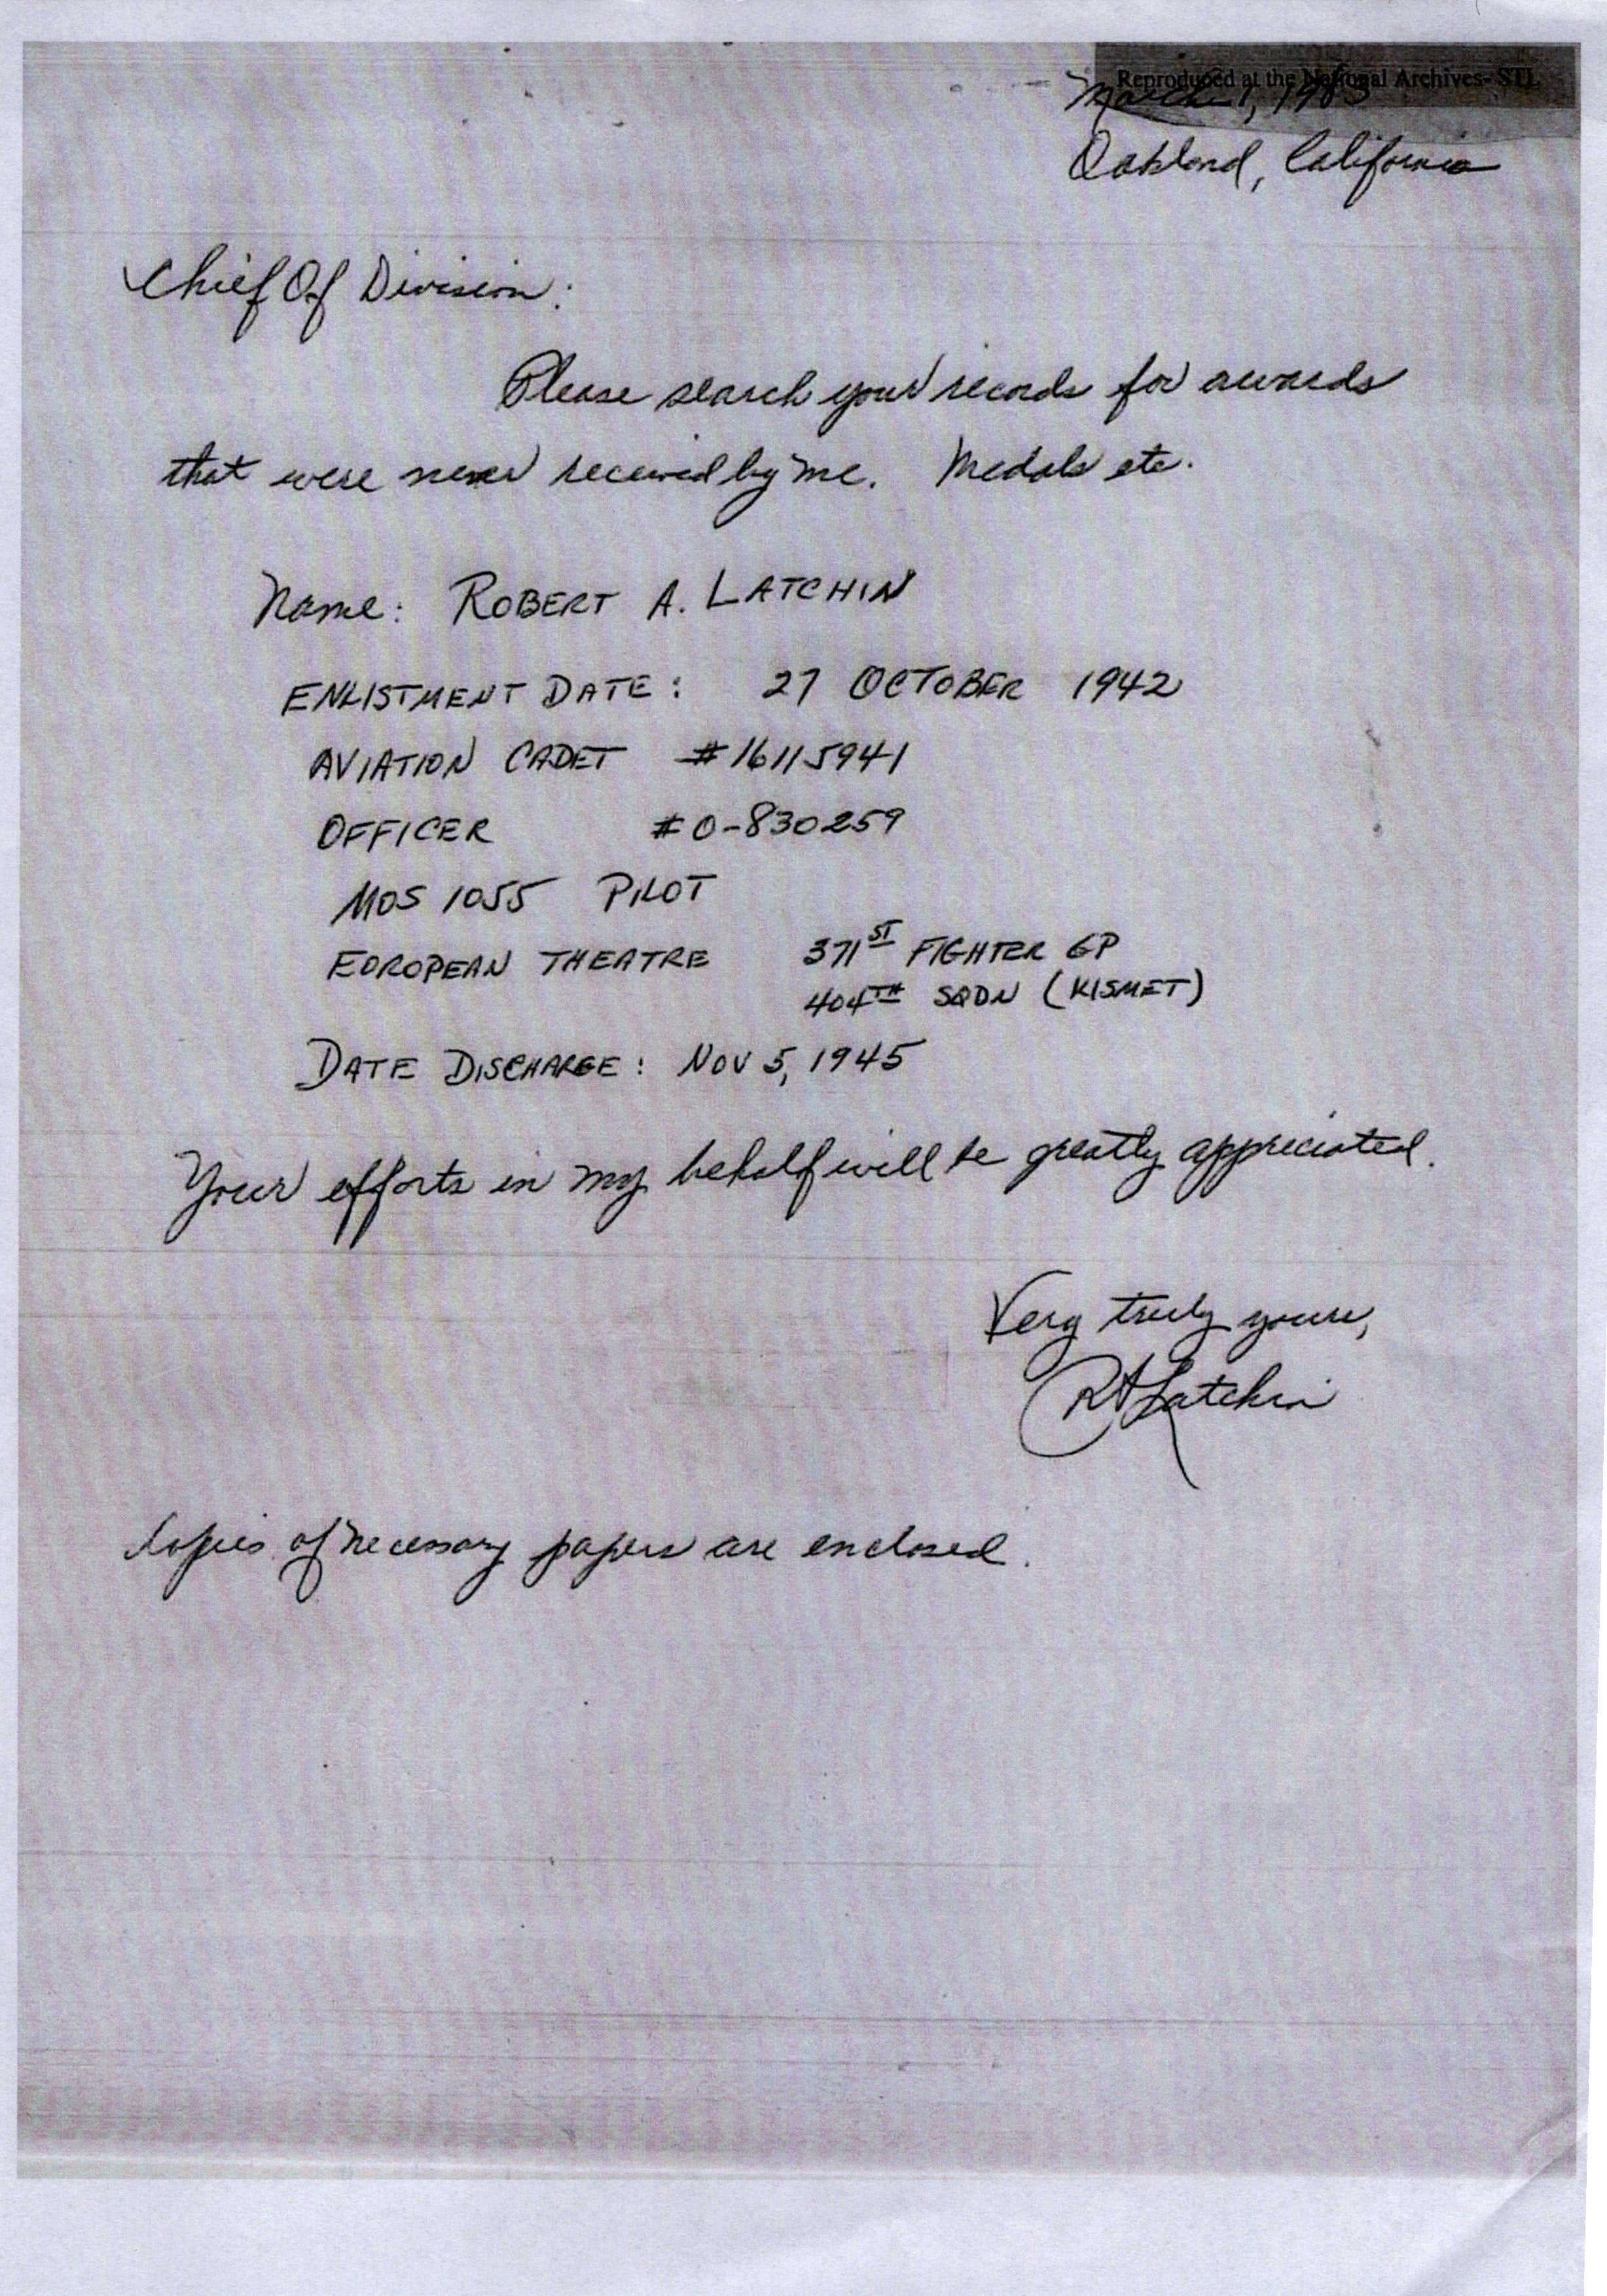 Reproduced at the National Archives- STL
March 1, 1983
Oakland, California
Chief Of Division:
Please search your records for awards
that were never received by me. Medals etc.
Name: ROBERT A. LATCHIN
ENLISTMENT DATE: 27 OCTOBER 1942
AVIATION CADET #16115941
OFFICER #0-830259
MOS 1055 PILOT
EUROPEAN THEATRE 371ST FIGHTER GP
404TH SQDN (KISMET)
DATE DISCHARGE: NOV 5, 1945
Your efforts in my behalf will be greatly appreciated.
Very truly yours,
RALatchin
Copies of necessary papers are enclosed.